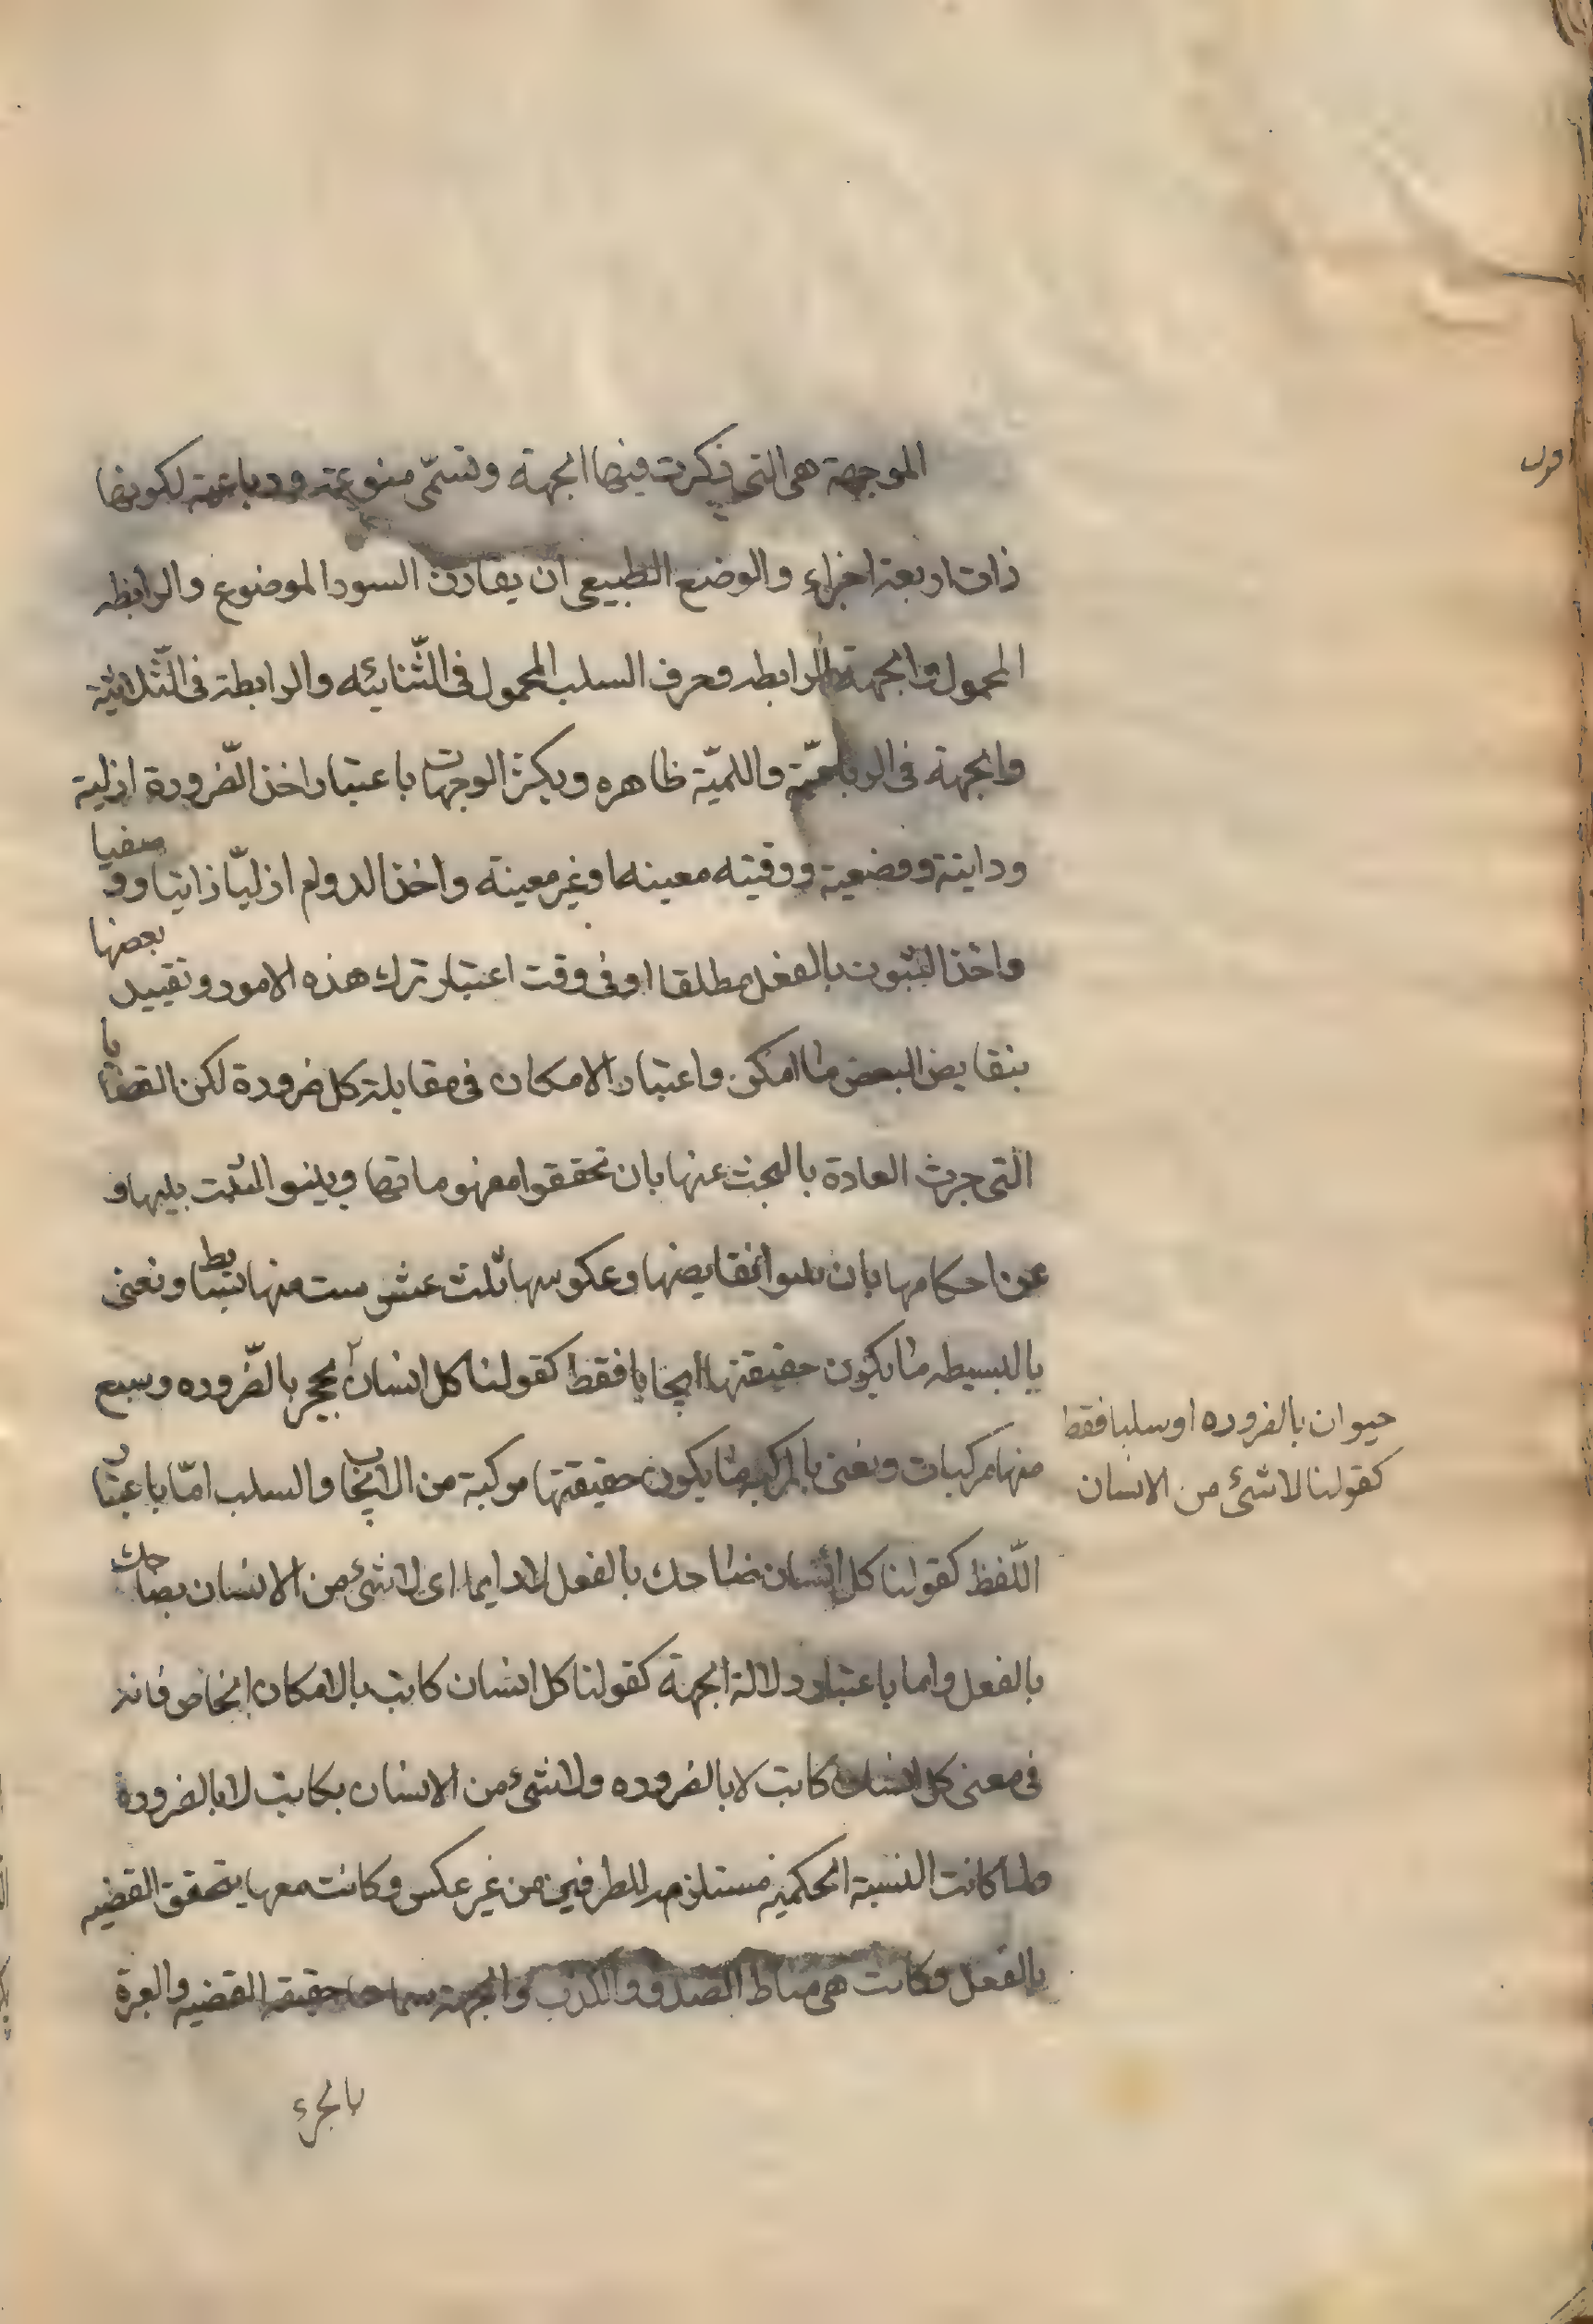 الموجهة هى التى ذكرت فيها الجهة وتسمّى منوعة ورباعية لكونها
ذات اربعة اجزاء والوضع الطبيعى ان يقارن السور الموضوع والرابطه
المحمول والجهة الرابطه وحرف السلب المحمول فى الثّنائيه والرابطة فى الثّلاثية
والجهة فى الرباعيّة واللميّة ظاهره ويكثر الوجهات باعتبار اخذ الضّرورة ازلية
وذاتية ووضعية ووقتيه معينه او غير معينة واخذ الدوام ازليّا ذاتيا وو صفيا
واخذ الثبوت بالفعل مطلقا او فى وقت اعتبار ترك هذه الامور وتقييد بعضها
بنقايض البعض ما امكن واعتبار الامكان فى مقابلة كل ضرورة لكن القضايا
التى جرت العادة بالبحث عنها بان تحققوا مفهوماتها ويبنوا النسبت بينها و
عن احكامها بان نقايضها وعكوسها ثلث عشر ست منها بسايط ونعنى
بالبسيطه ما يكون حقيقتها ايجابا فقط كقولنا كل انسان بحجر بالضّروره وسبع
حيوان بالضروره او سلبا فقط
كقولنا لا شئ من الانسان
منها مركبات ونعنى بالمركبه ما يكون حقيقتها مركبة من الايجاب والسلب امّا باعتبار
اللّفظ كقولنا كل انسان ضاحك بالفعل لا دايما اى لا شئ من الانسان بضاحك
بالفعل واما باعتبار دلالة الجهة كقولنا كل انسان كاتب بالامكان الخاص فانه
فى معنى كل انسان كاتب لا بالضروره ولا شئ من الانسان بكاتب لا بالضرورة
ولما كانت النسبة الحكمية مستلزمه للطرفين من غير عكس وكانت معها يتحقق القضيه
بالفعل وكانت هى مناط الصدق والكذب والجهة حقيقة القضيه والعبرة
بالجزء